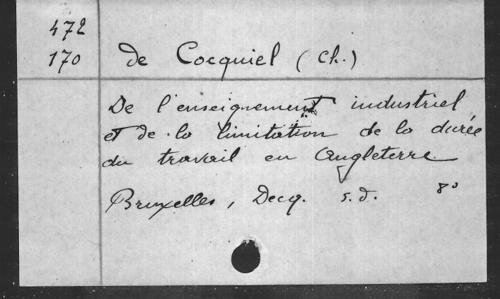 472
170
de Cocquiel (Ch.)
De l'enseignement industriel
et de la limitation de la durée
du travail en Angleterre
Bruxelles, Decq. s.d. 8°